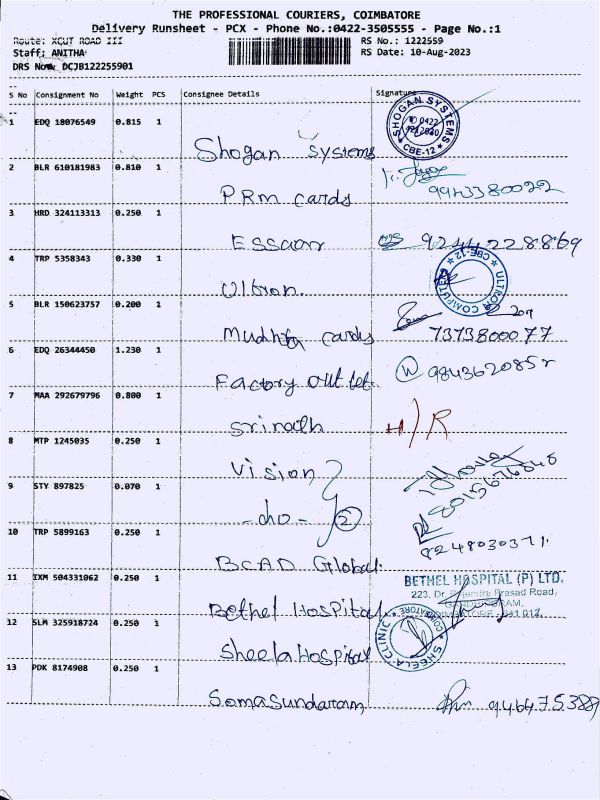 THE PROFESSIONAL COURIERS, COIMBATORE
Delivery Runsheet - PCX - Phone No.:0422-3505555 - Page No.:1
Route: XCUT ROAD III RS No.: 1222559
Staff: ANITHA RS Date: 10-Aug-2023
DRS No.: DCJB122255901
S No Consignment No Weight PCS Consignee Details Signature
1 EDQ 18076549 0.815 1 Shogan Systems
SHOGAN SYSTEMS CBE-12 0422
2 BLR 610181983 0.810 1 PRM cards
3 HRD 324113313 0.250 1 9244228869
4 TRP 5358343 0.330 1 Ultron.
ULTRON COMPUTER CBE-12
5 BLR 150623757 0.200 1 cards 7373800077
6 EDQ 26344450 1.230 1 Factory outlet.
7 MAA 292679796 0.800 1 Srinath H/R
8 MTP 1245035 0.250 1 Vision
9 STY 897825 0.070 1 -do- 2
10 TRP 5899163 0.250 1 BCAD Global.
11 IXM 504331062 0.250 1 Bethel Hospital
BETHEL HOSPITAL (P) LTD.
223, Dr. Rajendra Prasad Road,
COIMBATORE - 641 012.
12 SLM 325918724 0.250 1 Sheela Hospital
SHEELA CLINIC COIMBATORE
13 PDK 8174908 0.250 1 Somasundaram